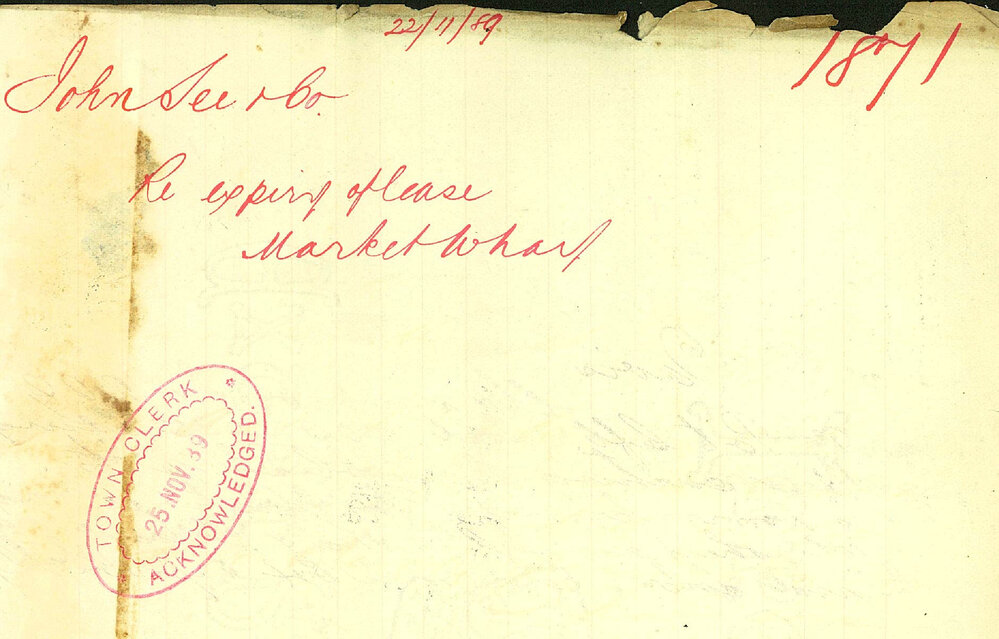 22/11/89
1871
John See & Co.
Re expiry of lease
Market Wharf
TOWN CLERK
25.NOV.89
ACKNOWLEDGED.